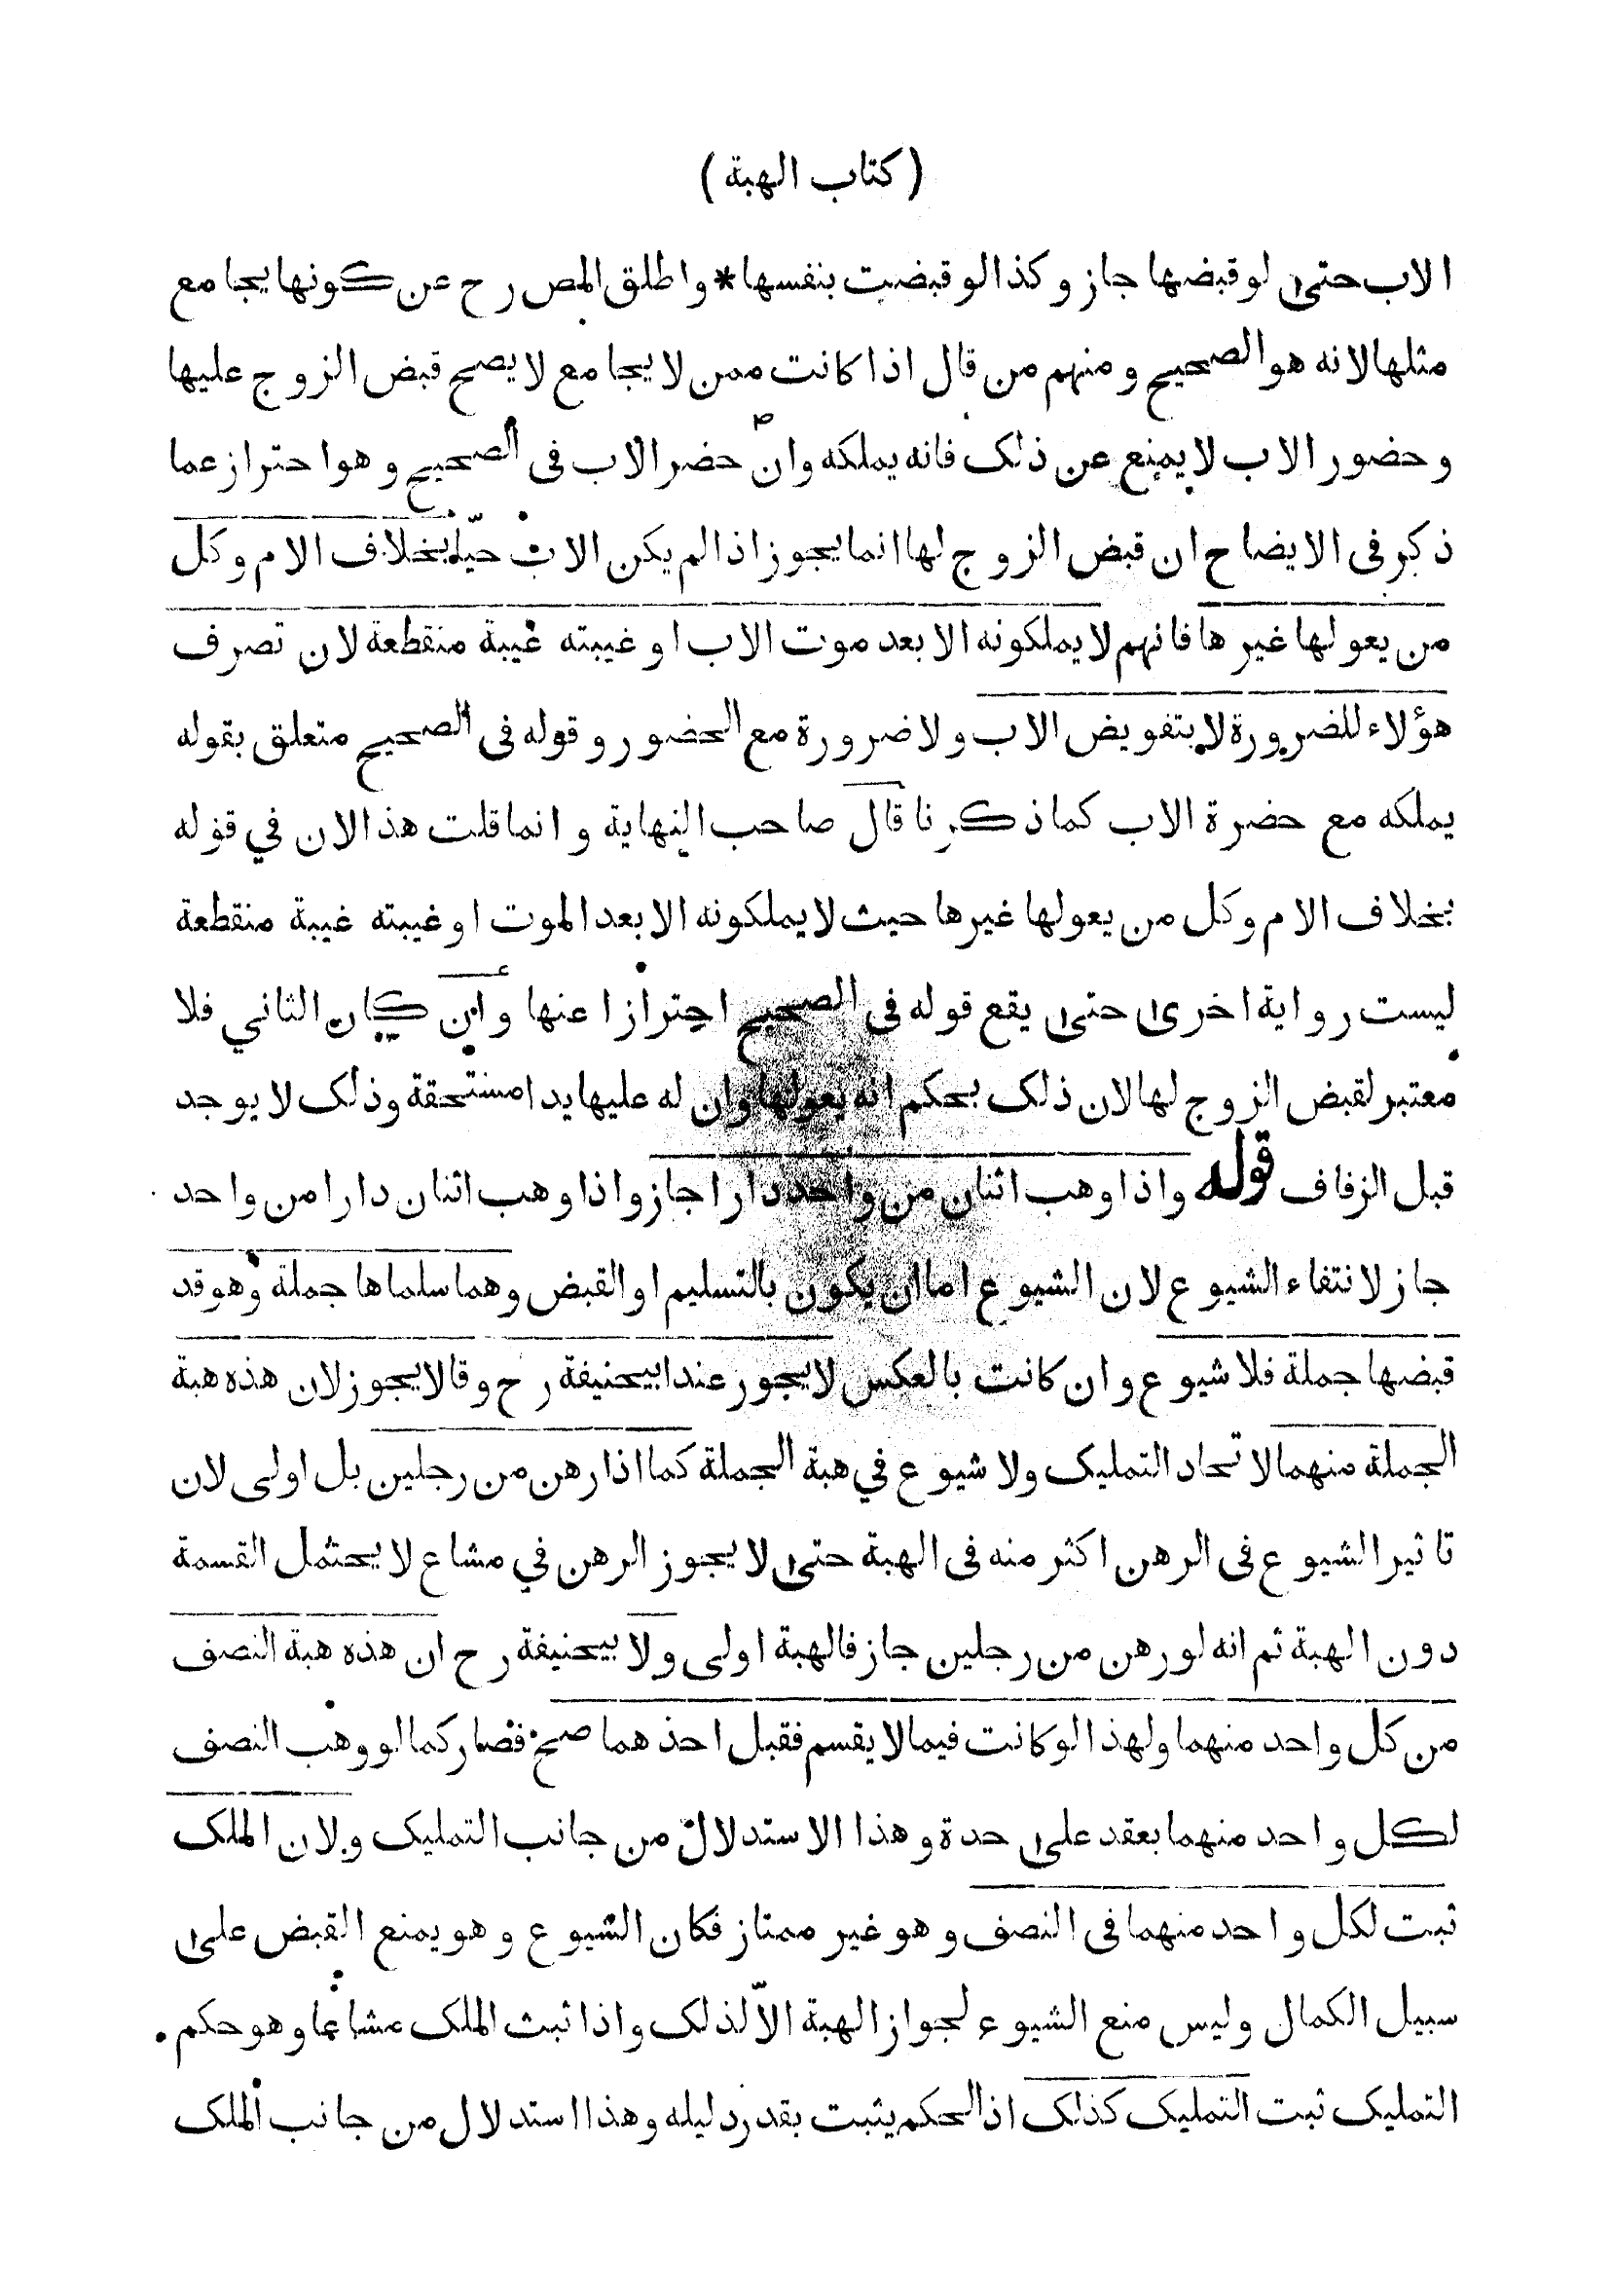 ( كتاب الهبة )
الاب حتى لو قبضها جاز وكذا لو قبضت بنفسها * واطلق المص رح عن كونها يجامع
مثلها لانه هو الصحيح ومنهم من قال اذا كانت ممن لا يجامع لا يصح قبض الزوج عليها
وحضور الاب لا يمنع عن ذلك فانه يملكه وان حضر الاب فى الصحيح وهو احتراز عما
ذكر فى الايضاح ان قبض الزوج لها انما يجوز اذا لم يكن الاب حيا بخلاف الام وكل
من يعولها غيرها فانهم لا يملكونه الا بعد موت الاب او غيبته غيبة منقطعة لان تصرف
هؤلاء للضرورة لا بتفويض الاب ولا ضرورة مع الحضور وقوله فى الصحيح متعلق بقوله
يملكه مع حضرة الاب كما ذكرنا قال صاحب النهاية وانما قلت هذا لان في قوله
بخلاف الام وكل من يعولها غيرها حيث لا يملكونه الا بعد الموت او غيبته غيبة منقطعة
ليست رواية اخرى حتى يقع قوله فى الصحيح احترازا عنها وان كان الثاني فلا
معتبر لقبض الزوج لها لان ذلك بحكم انه يعولها وان له عليها يدا مستحقة وذلك لا يوجد
قبل الزفاف قوله واذا وهب اثنان من واحد دارا جاز واذا وهب اثنان دارا من واحد
جاز لانتفاء الشيوع لان الشيوع اما ان يكون بالتسليم او القبض وهما سلماها جملة وهو قد
قبضها جملة فلا شيوع وان كانت بالعكس لا يجوز عند ابيحنيفة رح وقالا يجوز لان هذه هبة
الجملة منهما لاتحاد التمليك ولا شيوع في هبة الجملة كما اذا رهن من رجلين بل اولى لان
تاثير الشيوع فى الرهن اكثر منه فى الهبة حتى لا يجوز الرهن في مشاع لا يحتمل القسمة
دون الهبة ثم انه لو رهن من رجلين جاز فالهبة اولى ولابيحنيفة رح ان هذه هبة النصف
من كل واحد منهما ولهذا لو كانت فيما لا يقسم فقبل احدهما صح فصار كما لو وهب النصف
لكل واحد منهما بعقد على حدة وهذا الاستدلال من جانب التمليك ولان الملك
ثبت لكل واحد منهما فى النصف وهو غير ممتاز فكان الشيوع وهو يمنع القبض على
سبيل الكمال وليس منع الشيوع لجواز الهبة الاّ لذلك واذا ثبت الملك مشاعا وهو حكم
التمليك ثبت التمليك كذلك اذ الحكم يثبت بقدر دليله وهذا استدلال من جانب الملك